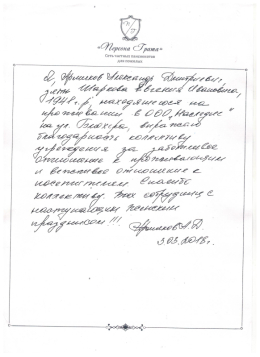 «Персона Грата»
Сеть частных пансионатов
для пожилых
Я, Александр Дмитриевич,
зять Шаркова Евгения Ивановича,
1948 г.р., находящегося на
проживании в ООО „Наследие"
на ул. Блюхера, выражаю
благодарность коллективу
учреждения за заботливое
отношение к проживающим
и вежливое отношение к
посетителям. Спасибо
коллективу. Всех сотрудниц с
наступающим женским
праздником!!!
3.03.2018г.